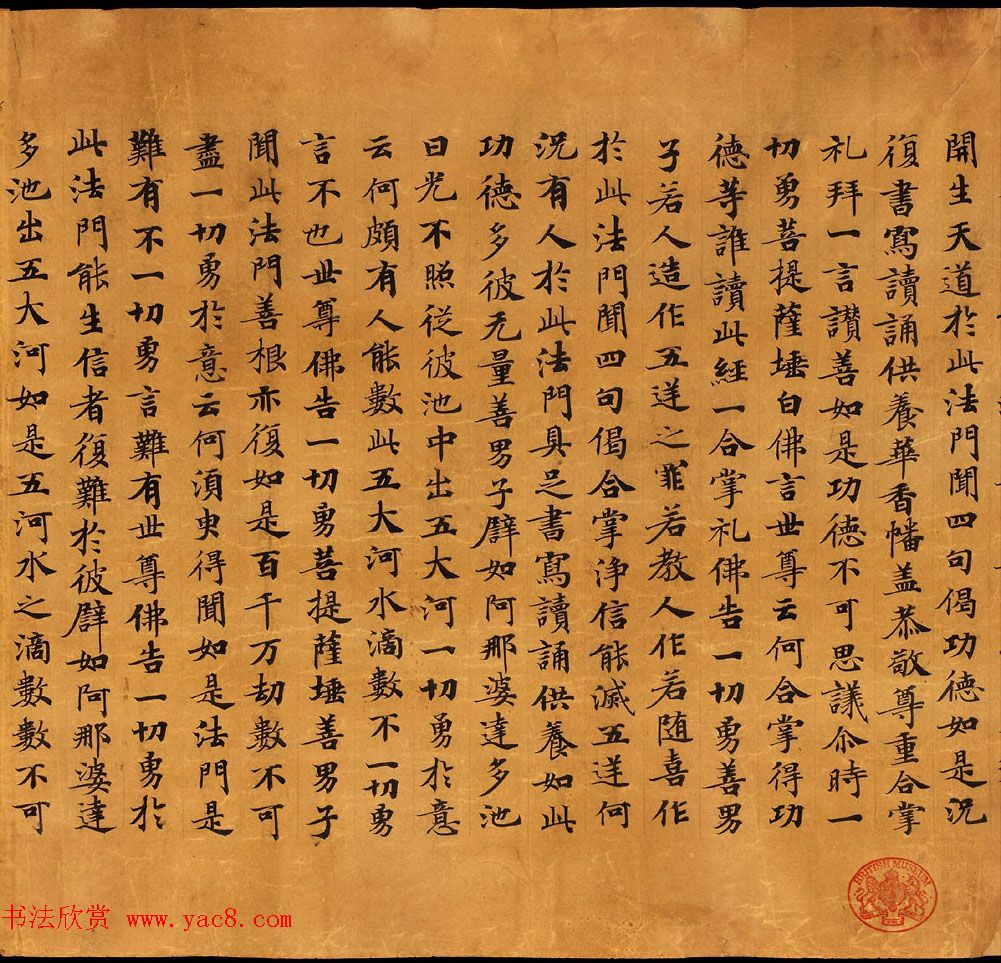 開生天道於此法門聞四句偈功德如是况
復書寫讀誦供養華香幡盖恭敬尊重合掌
礼拜一言讃善如是功德不可思議尒時一
切勇菩提薩埵白佛言世尊云何合掌得功
德䓁誰讀此經一合掌礼佛告一切勇善男
子若人造作五逆之罪若教人作若随喜作
於此法門聞四句偈合掌浄信能滅五逆何
況有人於此法門具足書寫讀誦供養如此
功德多彼无量善男子譬如阿那婆達多池
日光不照従彼池中出五大河一切勇於意
云何頗有人能數此五大河水滴數不一切勇
言不也世尊佛告一切勇菩提薩埵善男子
聞此法門善根亦復如是百千万劫數不可
盡一切勇於意云何湏臾得聞如是法門是
難有不一切勇言難有世尊佛告一切勇於
此法門能生信者復難於彼譬如阿那婆達
多池出五大河如是五河水之滴數數不可
BRITISH MUSEUM
书法欣赏 www.yac8.com